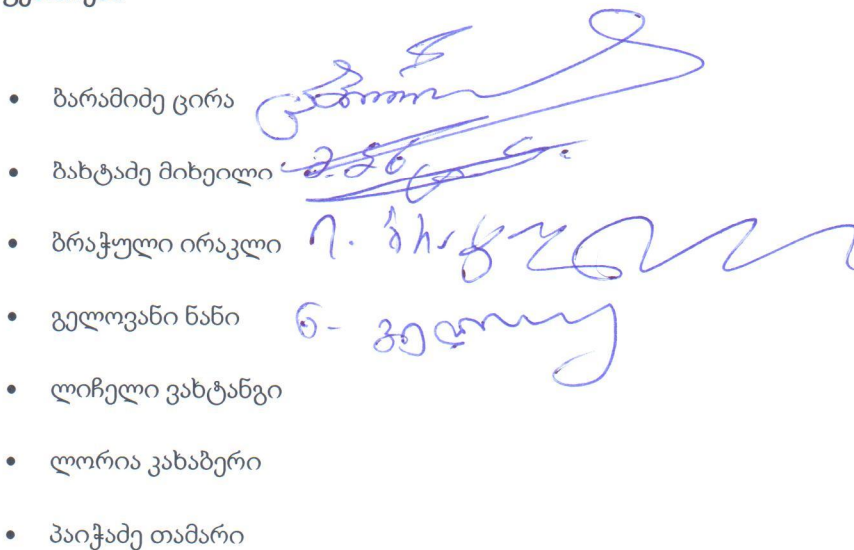 • ბარამიძე ცირა
• ბახტაძე მიხეილი
• ბრაჭული ირაკლი ი. ბრაჭულ
• გელოვანი ნანი ნ- გელო
• ლიჩელი ვახტანგი
• ლორია კახაბერი
• პაიჭაძე თამარი